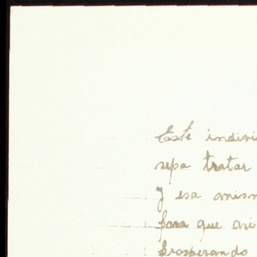 Este indivi
sepa tratar
y esa mism
para que asi
prosperando